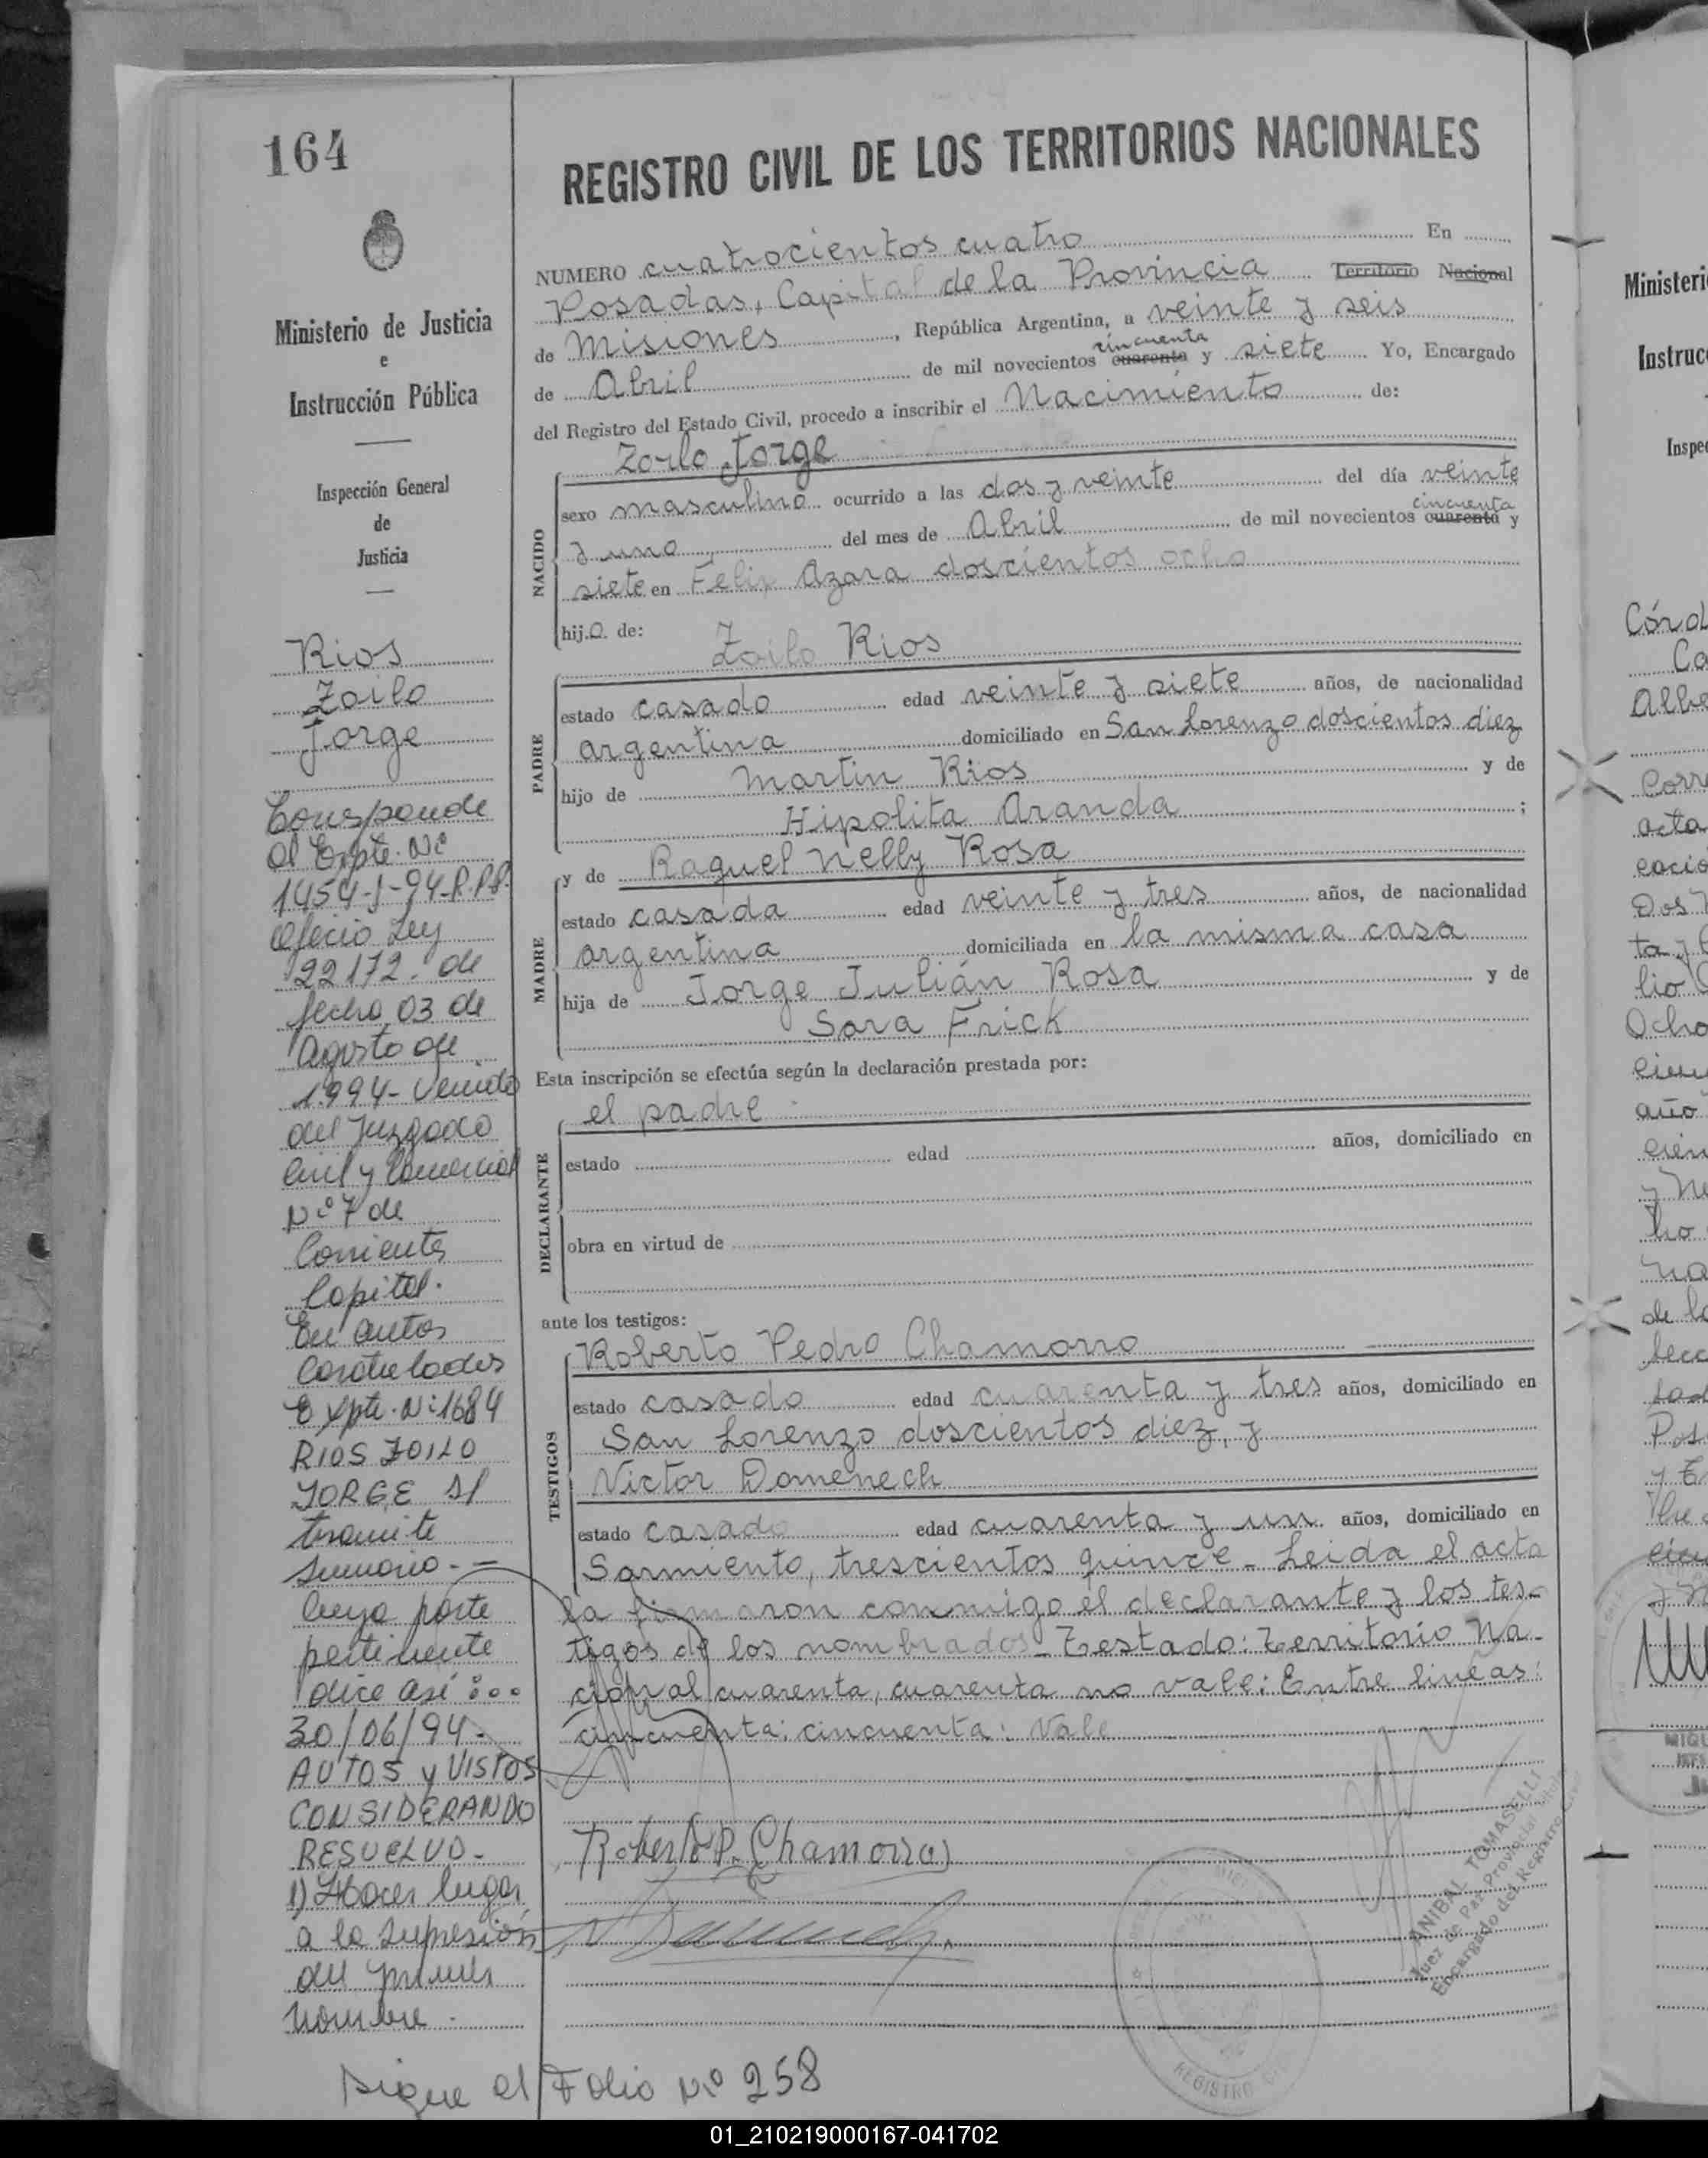 164
Ministerio de Justicia
e
Instrucción Pública
Inspección General
de
Justicia
Rios
Zoilo
Jorge
Corresponde
al Expte. Nº
1454-J-94-R.P.P.
Oficio Ley
22172. de
fecha 03 de
Agosto de
1994- venido
del Juzgado
Civil y Comercial
Nº 7 de
Corrientes
Capital.
En autos
Caratulados
Expte. Nº 1684
RIOS ZOILO
JORGE S/
tramite
Sumario.-
Cuya parte
pertinente
dice así :
30/06/94-
AUTOS y VISTOS
CONSIDERANDO
RESUELVO-
1) Hacer lugar
a la supresión
del primer
nombre.-
Sigue al Folio Nº 258
REGISTRO CIVIL DE LOS TERRITORIOS NACIONALES
NUMERO cuatrocientos cuatro En
Posadas, Capital de la Provincia Territorio Nacional
de Misiones, República Argentina, a veinte y seis
de Abril de mil novecientos cuarenta cincuenta y siete Yo, Encargado
del Registro del Estado Civil, procedo a inscribir el Nacimiento de:
Zoilo Jorge
NACIDO
sexo masculino ocurrido a las dos y veinte del día veinte
y uno del mes de Abril de mil novecientos cuarenta cincuenta y
siete en Félix Azara doscientos ocho
hijo de: Zoilo Rios
PADRE
estado casado edad veinte y siete años, de nacionalidad
argentina domiciliado en San Lorenzo doscientos diez
hijo de Martin Rios y de
Hipolita Aranda ;
y de Raquel Nelly Rosa
MADRE
estado casada edad veinte y tres años, de nacionalidad
argentina domiciliada en la misma casa
hija de Jorge Julián Rosa y de
Sara Frick
Esta inscripción se efectúa según la declaración prestada por:
el padre
DECLARANTE
estado edad años, domiciliado en
obra en virtud de
ante los testigos:
Roberto Pedro Chamorro
TESTIGOS
estado casado edad cuarenta y tres años, domiciliado en
San Lorenzo doscientos diez, y
Victor Domenech
estado casado edad cuarenta y un años, domiciliado en
Sarmiento, trescientos quince - Leida el acta
la firmaron conmigo el declarante y los tes-
tigos de los nombrados - Testado: Territorio Na-
cional cuarenta, cuarenta no vale: Entre lineas:
cincuenta: cincuenta: Vale
Roberto P. Chamorro
ANIBAL TOMASELLI
Juez de Paz Provincial
Encargado del Registro
REGISTRO
01_210219000167-041702